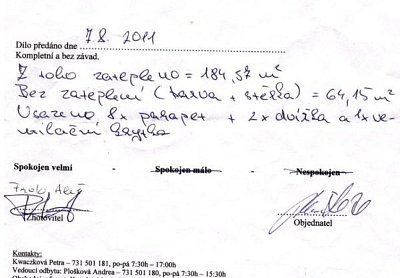 7.8. 2011
Dílo předáno dne
Kompletní a bez závad.
Z toho zatepleno = 184,57 m²
Bez zateplení (barva + stěrka) = 64,15 m²
Usazeno 8x parapet + 2x dvířka a 1x ve-
ntilační
Spokojen velmi - Spokojen málo - Nespokojen
Aleš
Zhotovitel Objednatel
Kontakty:
Kwaczková Petra – 731 501 181, po-pá 7:30h – 17:00h
Vedoucí odbytu: Plošková Andrea – 731 501 180, po-pá 7:30h – 15:30h